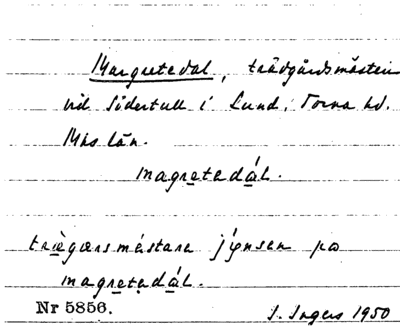 Margretedal, trädgårdsmästeri
vid Södertull i Lund, Torna hd.
Mhs län.
magretedál.
trègårsméstare jǫ́nsen på
magretedál.
Nr 5856.
I. Ingers 1950